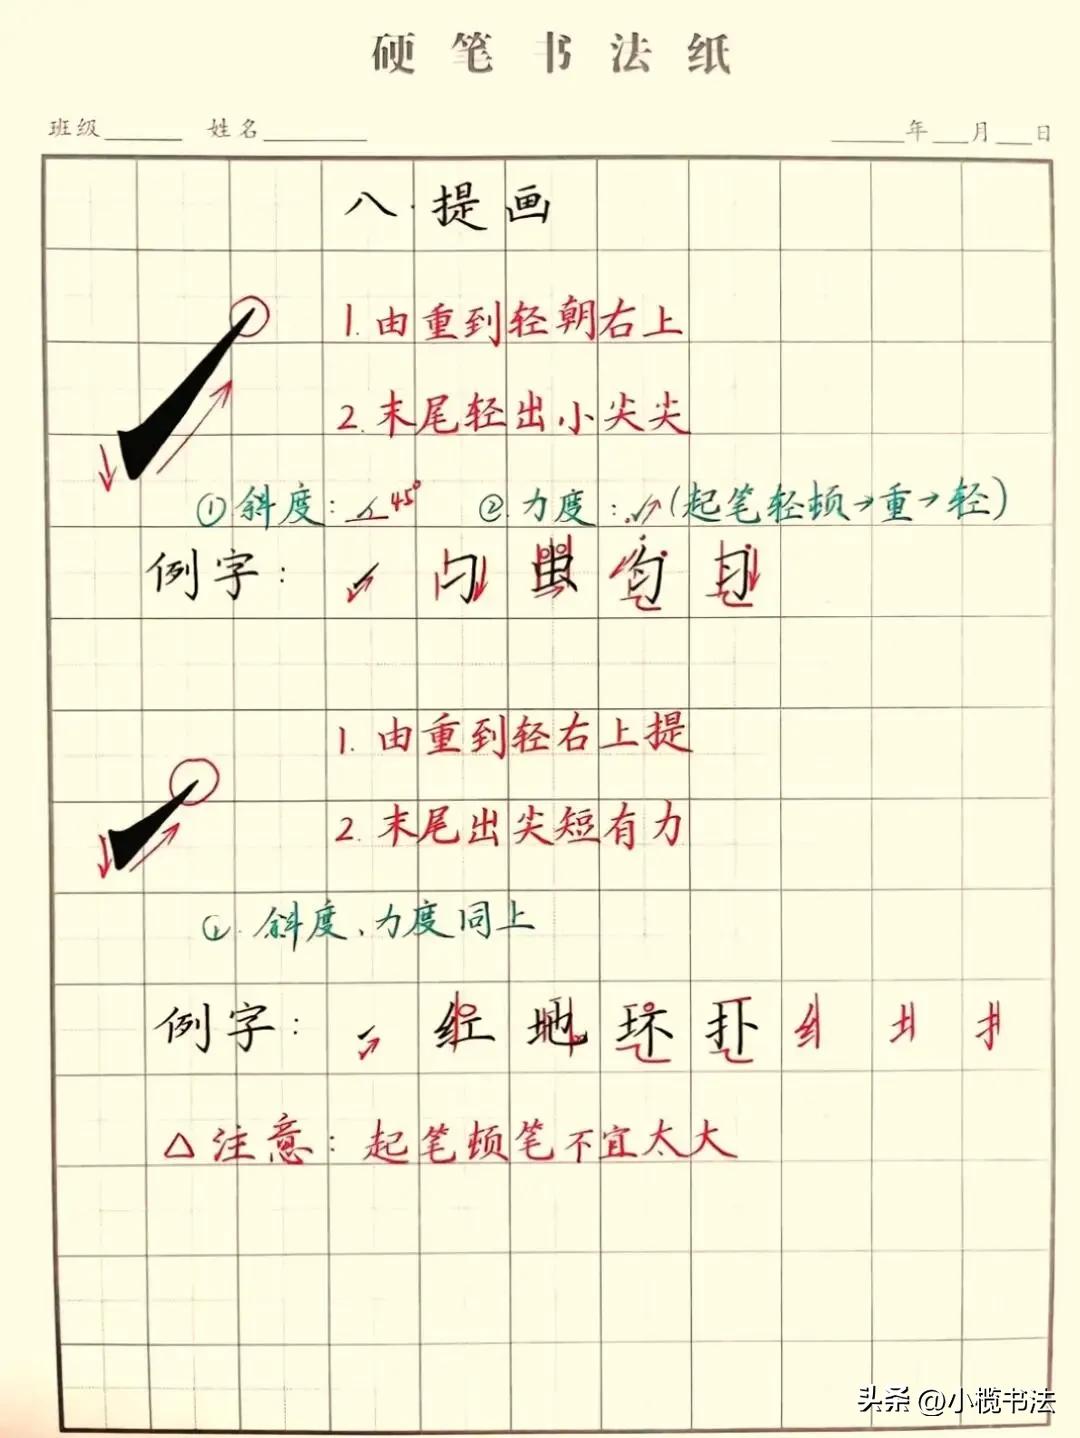 硬笔书法纸
班级 姓名 年 月 日
八.提画
1.由重到轻朝右上
2.末尾轻出小尖尖
①斜度: 45° ②力度: (起笔轻顿→重→轻)
例字: 习 虫 匀
1.由重到轻右上提
2.末尾出尖短有力
斜度、力度同上
例字: 红 地 环 扑 纟 土 扌
△注意:起笔顿笔不宜太大
头条 @小榄书法